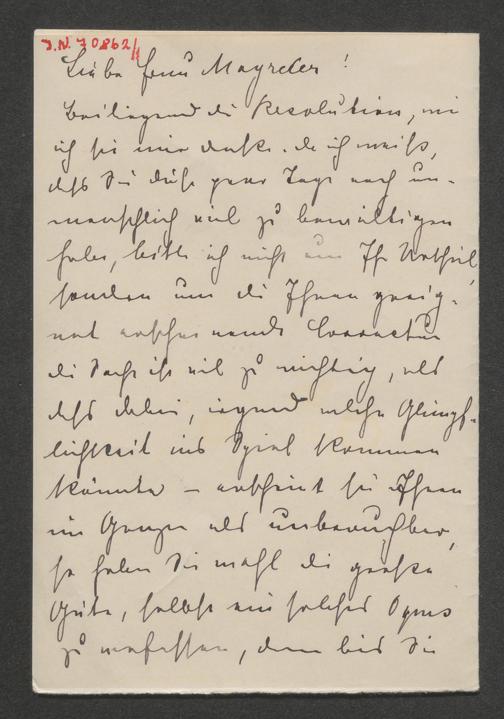 J.N. 70862/
Liebe Frau Mayreder!
Beiliegend die Resolution, wie
ich sie mir denke. Da ich weiß,
daß Sie diese paar Tage noch un-
menschlich viel zu bewältigen
haben, bitte ich nicht um Ihr Urtheil,
sondern um die Ihnen geeig-
net erscheinende Correctur
die Sache ist viel zu wichtig, als
daß dabei, irgend welche Glimpf-
lichkeit ins Spiel kommen
könnte – erscheint sie Ihnen
im Ganzen als unbrauchbar,
so haben Sie wohl die große
Güte, selbst ein solches Opus
zu verfassen, denn bis Sie